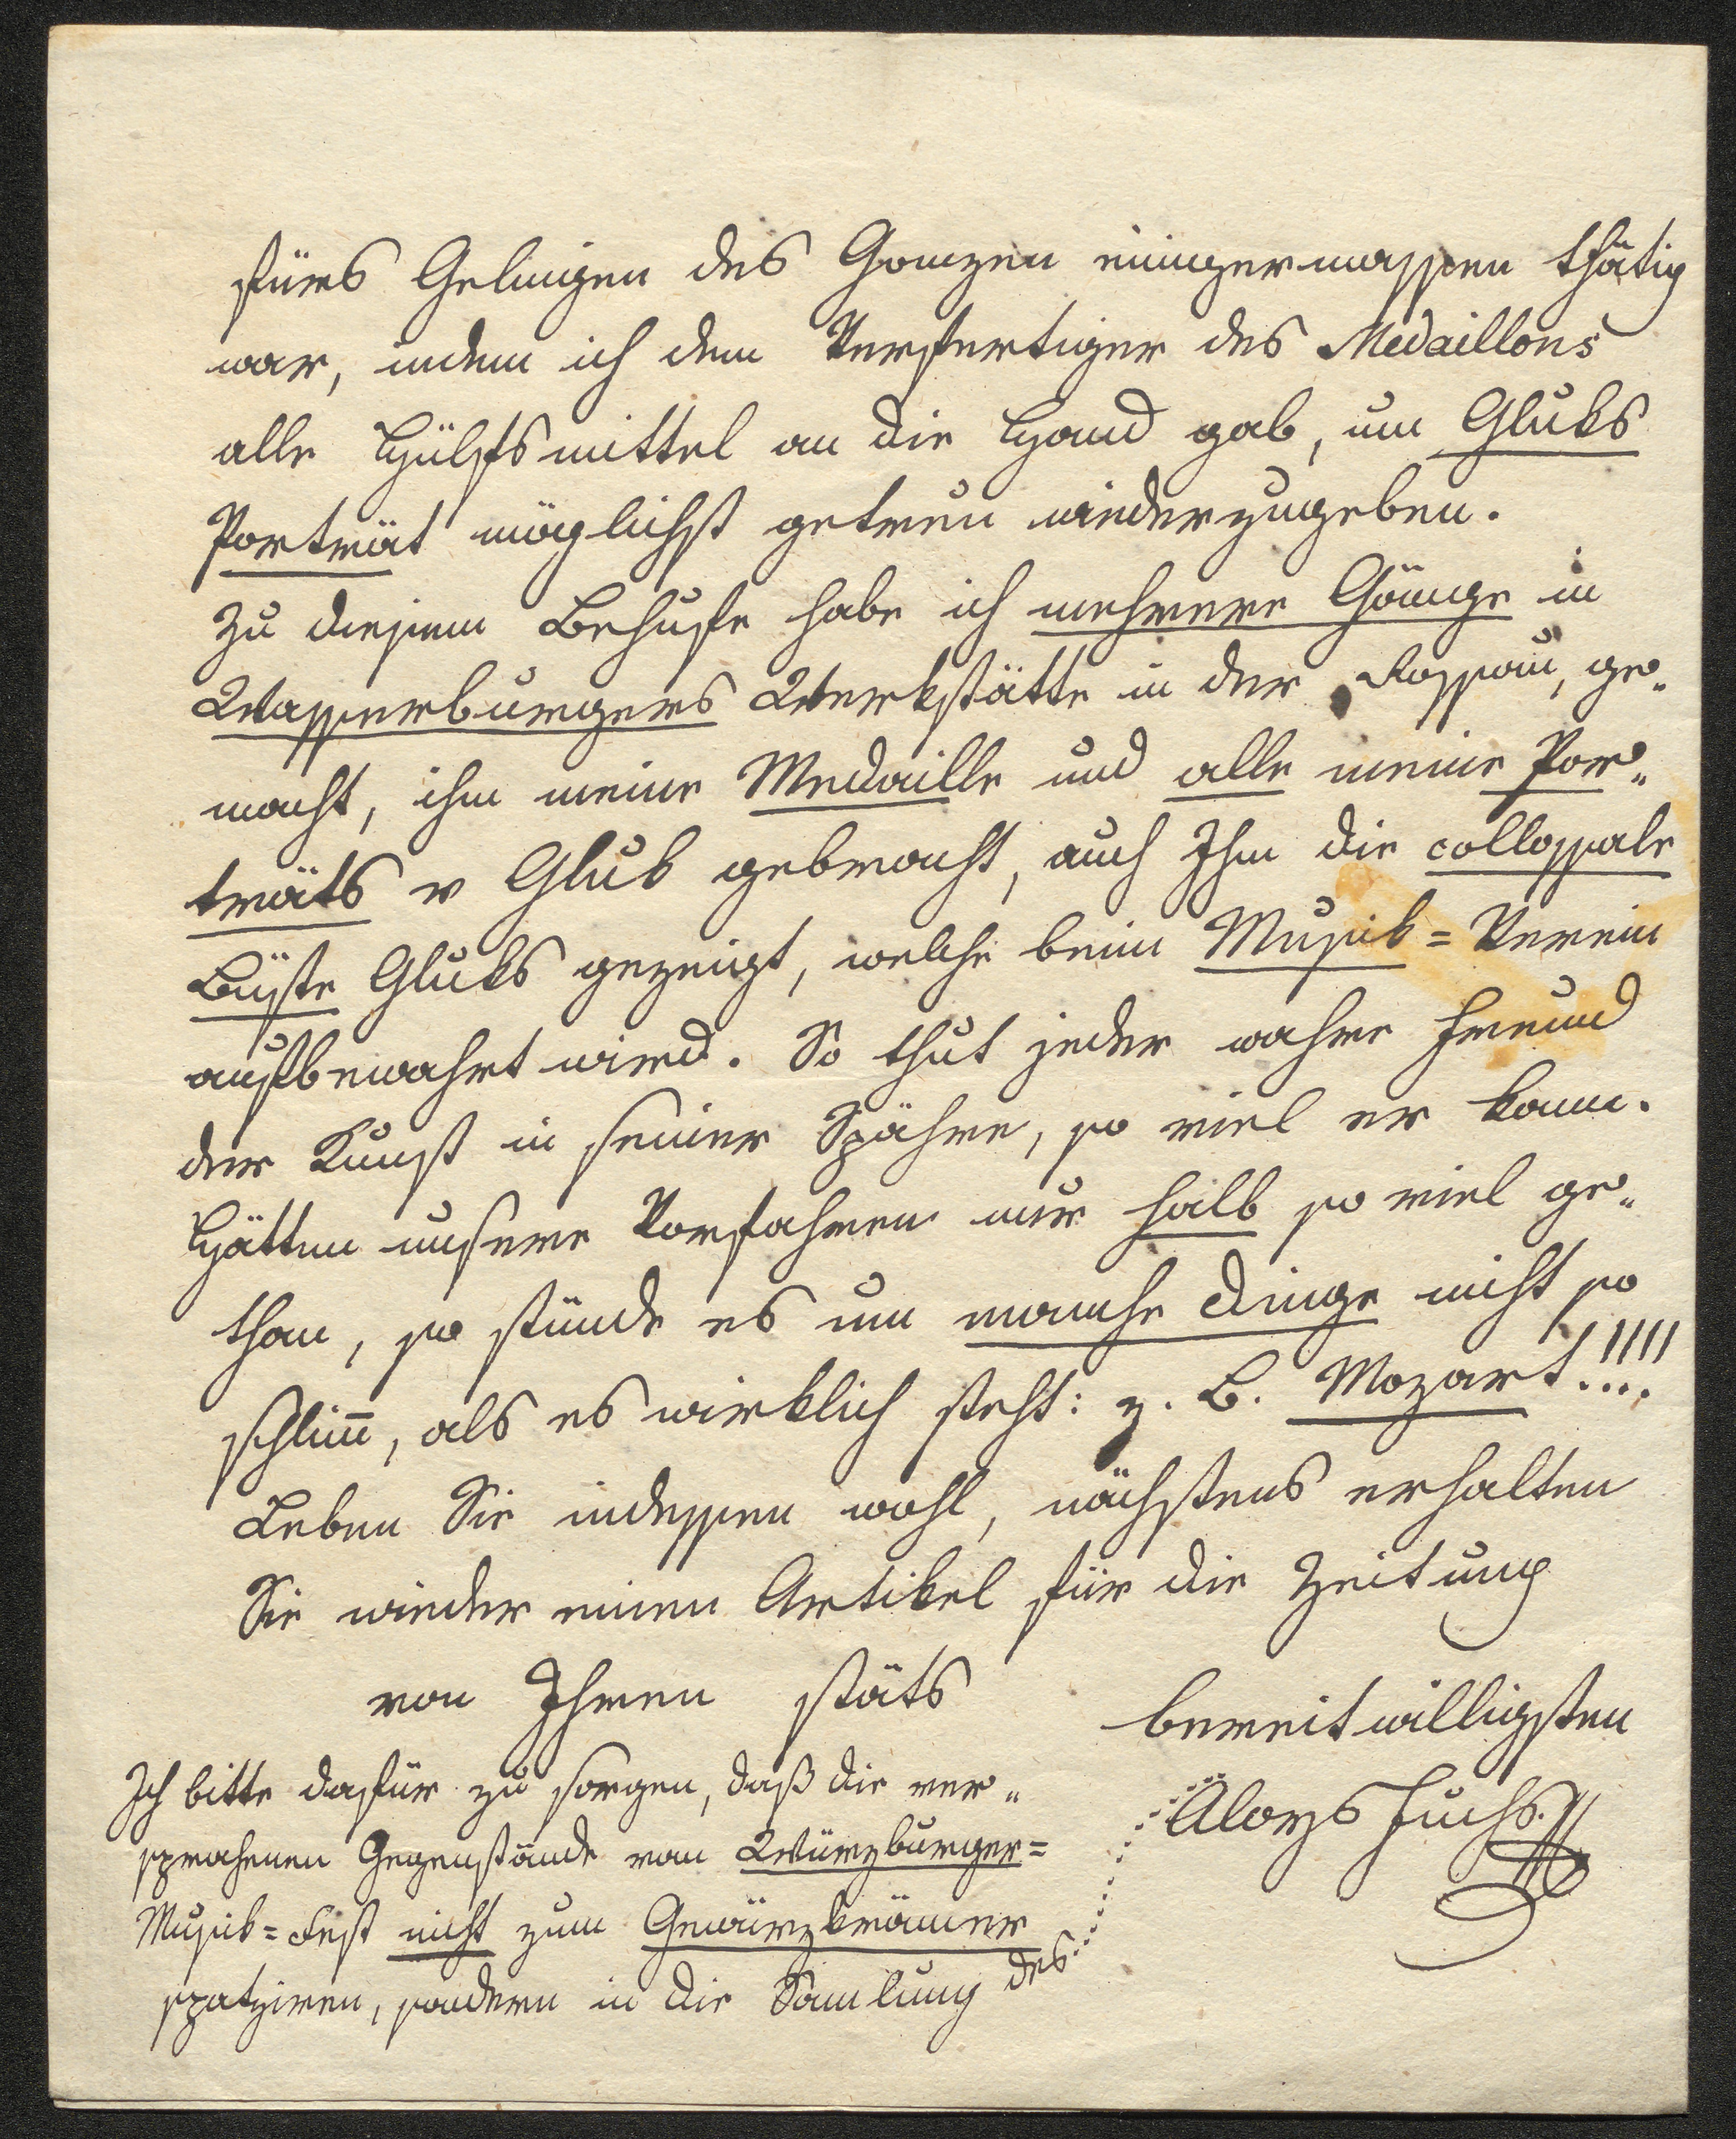 fürs Gelingen des Ganzen einigermassen thätig
war, indem ich dem Verfertiger des Medaillons
alle Hülfsmittel an die Hand gab, um Gluks
Porträt möglichst getreu wiederzugeben.
Zu diesem Behufe habe ich mehrere Gänge in
Wasserburgers Werkstätte in der Rossau, ge„
macht, ihm meine Medaille und alle meine Por„
träts v Gluk gebracht, auch Ihm die collossale
Büste Gluks gezeigt, welche beim Musik=Verein
aufbewahrt wird. So thut jeder wahre Freund
der Kunst in seiner Spähre, so viel er kann.
Hätten unsere Vorfahren nur halb so viel ge„
than, so stünde es um manche Dinge nicht so
schlim̄, als es wirklich steht: z. B. Mozart!!!!
Leben Sie indessen wohl, nächstens erhalten
Sie wieder einen Artikel für die Zeitung
von Ihren stäts
bereitwilligsten
Aloys Fuchs.
Ich bitte dafür zu sorgen, daß die ver„
sprochenen Gegenstände von Würzburger=
Musik=Fest nicht zum Gewürzkrämer
spatziren, sondern in die Samlung des